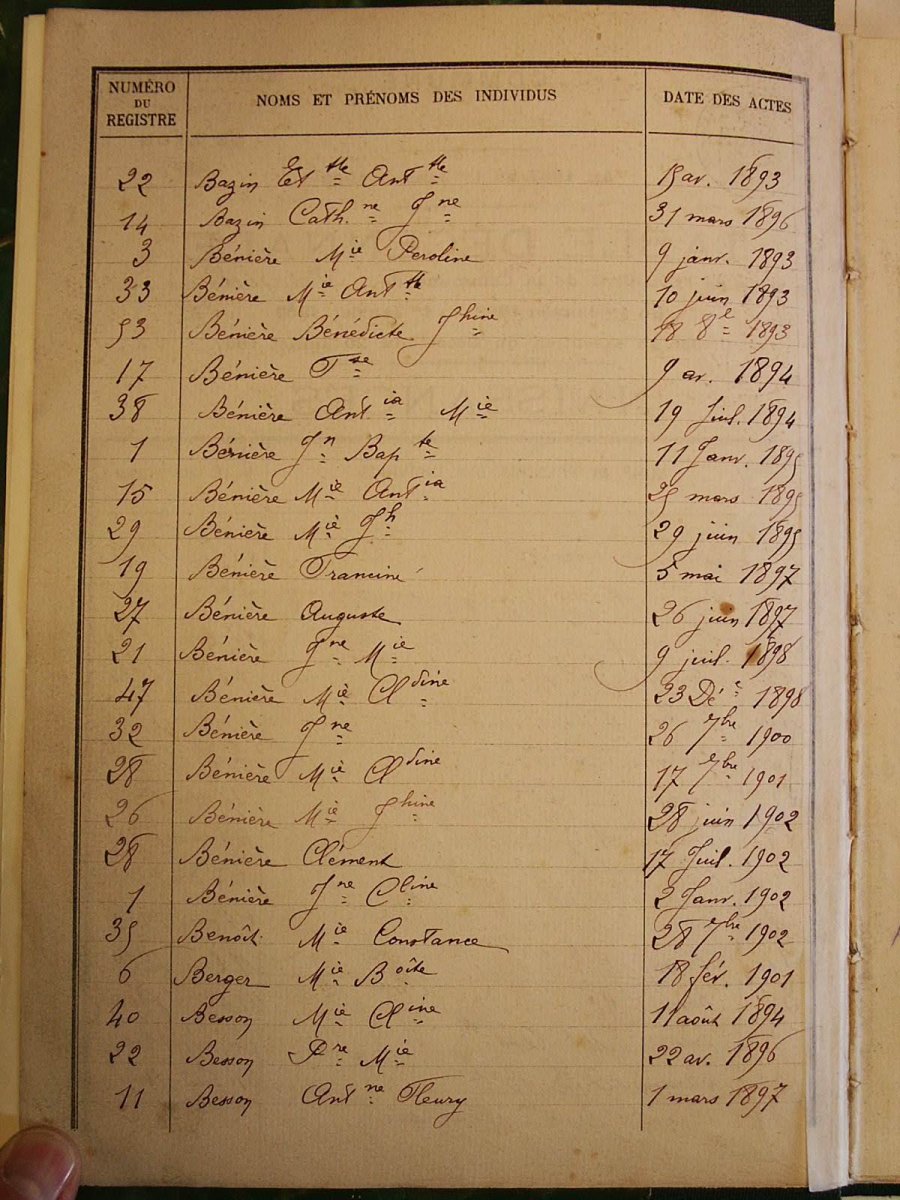 NUMÉRO DU REGISTRE NOMS ET PRÉNOMS DES INDIVIDUS DATE DES ACTES
22 Bazin Et tte Ant tte 15 av. 1893
14 Bazin Cath. ne Jne 31 mars 1896
3 Bénière Mie Peroline 9 janv. 1893
33 Bénière Mie Ant tte 10 juin 1893
53 Bénière Bénédicte Jhine 18 8e 1893
17 Bénière Tse 9 av. 1894
38 Bénière Antia Mie 19 Juil. 1894
1 Bénière Jn Bapte 11 Janv. 1895
15 Bénière Mie Antia 25 mars 1895
29 Bénière Mie Jh 29 juin 1895
19 Bénière Francine 5 mai 1897
27 Bénière Auguste 26 juin 1897
21 Bénière Jne Mie 9 juil. 1898
47 Bénière Mie Cldine 23 Déc 1898
32 Bénière Jne 26 7bre 1900
28 Bénière Mie Cldine 17 7bre 1901
26 Bénière Mie Jhine 28 juin 1902
28 Bénière Clément 17 Juil. 1902
1 Bénière Jne Cline 2 Janv. 1902
35 Benoît Mie Constance 28 7bre 1902
6 Berger Mie Boîte 18 fév. 1901
40 Besson Mie Cline 11 août 1894
22 Besson Pre Mie 22 av. 1896
11 Besson Antne Fleury 1 mars 1897